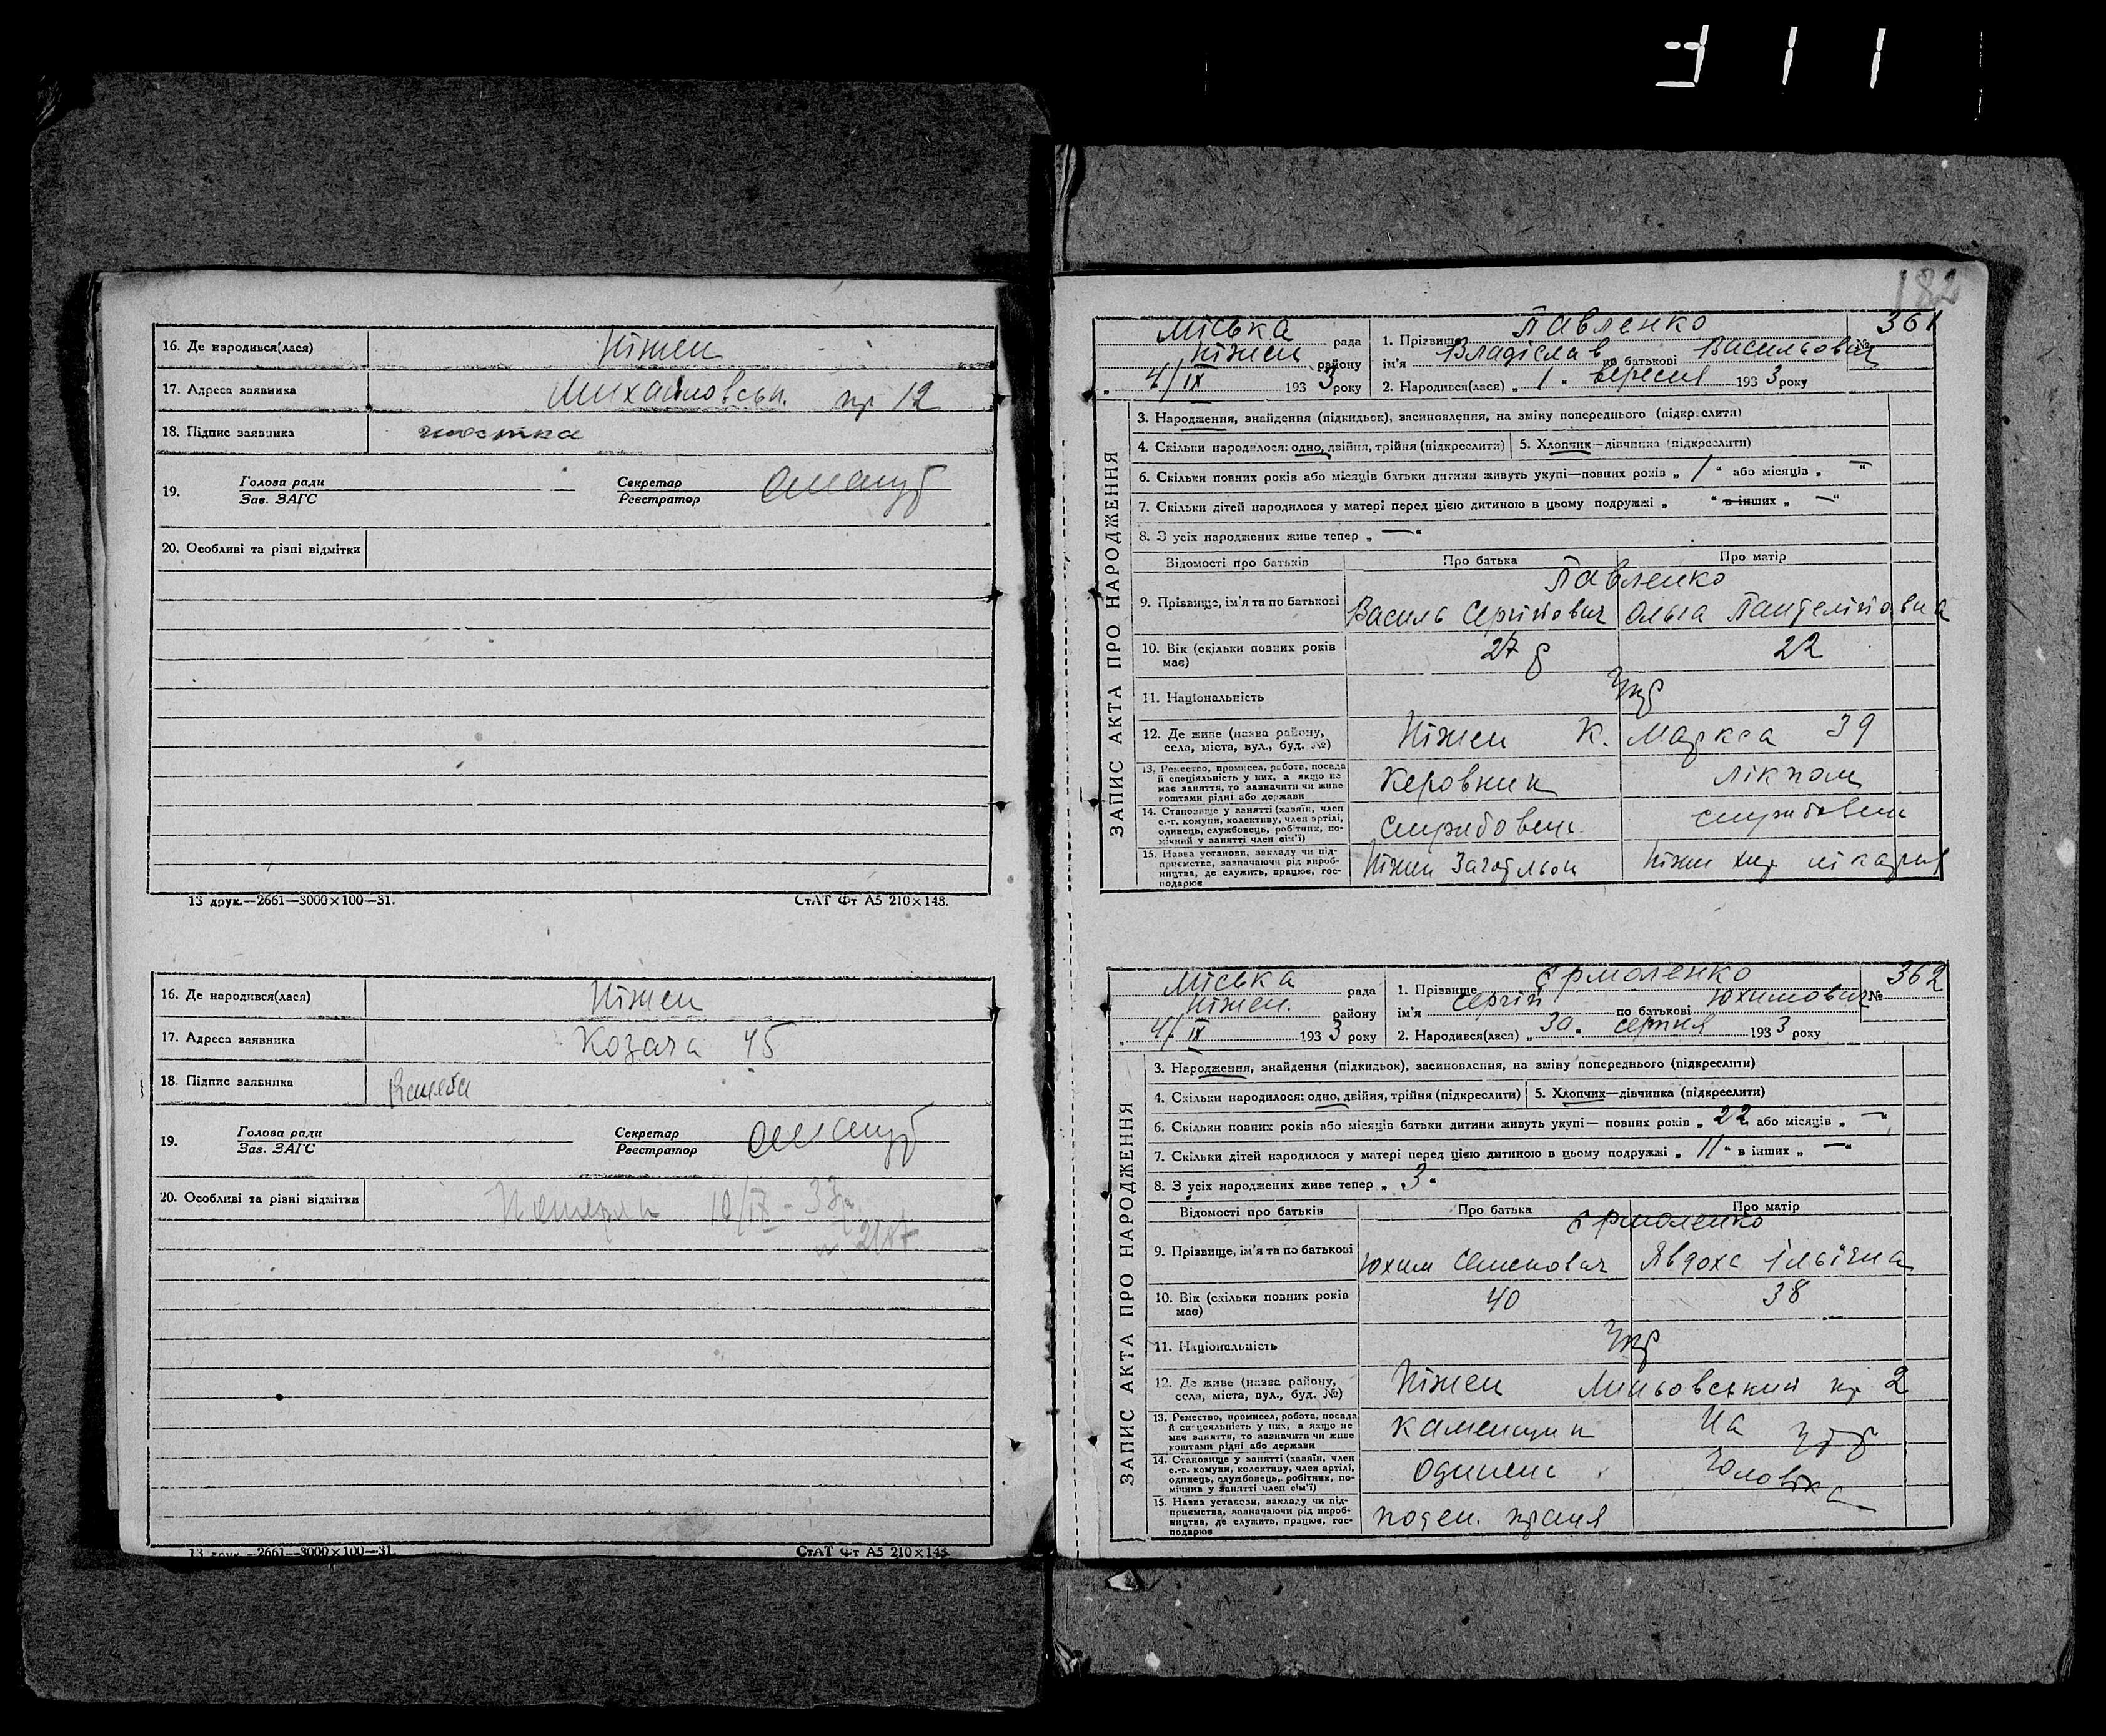 311
16. Де народився(лася) Ніжен
17. Адреса заявника Михайловськ. пр 12
18. Підпис заявника
19. Голова ради
Зав. ЗАГС
Секретар
Реєстратор
20. Особливі та різні відмітки
13 друк.—2661—3000×100—31. СтАТ Фт А5 210×148.
16. Де народився(лася) Ніжен
17. Адреса заявника Козача 45
18. Підпис заявника
19. Голова ради
Зав. ЗАГС
Секретар
Реєстратор
20. Особливі та різні відмітки 10/IX - 33р.
13 друк.—2661—3000×100—31. СтАТ Фт А5 210×148
182
ЗАПИС АКТА ПРО НАРОДЖЕННЯ
Міська рада
Ніжен району
„ 4/IX 1933 року
1. Прізвище Павленко
№ 361
ім'я Владіслав по батькові Васильович
2. Народився(лася) „ 1 " вересня 1933 року
3. Народження, знайдення (підкидьок), засиновлення, на зміну попереднього (підкреслити)
4. Скільки народилося: одно, двійня, трійня (підкреслити) 5. Хлопчик—дівчинка (підкреслити)
6. Скільки повних років або місяців батьки дитини живуть укупі—повних років „ 1 " або місяців „ — "
7. Скільки дітей народилося у матері перед цією дитиною в цьому подружжі „ " в інших „ — "
8. З усіх народжених живе тепер „ — "
Відомості про батьків Про батька Про матір
Павленко
9. Прізвище, ім'я та по батькові Василь Сергійович Ольга Пантелійовна
10. Вік (скільки повних років має) 27 р 22
11. Національність Укр
12. Де живе (назва району, села, міста, вул., буд. №) Ніжен К. Маркса 39
13. Ремество, промисел, робота, посада й спеціяльність у них, а якщо не має заняття, то зазначити чи живе коштами рідні або держави Керовник лікпом
14. Становище у занятті (хазяїн, член с.-г. комуни, колективу, член артілі, одинець, службовець, робітник, помічний у занятті член сім'ї) службовець службовець
15. Назва установи, закладу чи підприємства, зазначаючи рід виробництва, де служить, працює, господарює Ніжен лікарня
ЗАПИС АКТА ПРО НАРОДЖЕННЯ
Міська рада
Ніжен. району
„ 4/IX 1933 року
1. Прізвище Єрмоленко
№ 362
ім'я Сергій по батькові Юхимович
2. Народився(лася) „ 30 " серпня 1933 року
3. Народження, знайдення (підкидьок), засиновлення, на зміну попереднього (підкреслити)
4. Скільки народилося: одно, двійня, трійня (підкреслити) 5. Хлопчик—дівчинка (підкреслити)
6. Скільки повних років або місяців батьки дитини живуть укупі— повних років „ 22 або місяців „ — "
7. Скільки дітей народилося у матері перед цією дитиною в цьому подружжі „ 11 " в інших „ — "
8. З усіх народжених живе тепер „ 3 "
Відомості про батьків Про батька Про матір
Єрмоленко
9. Прізвище, ім'я та по батькові Юхим Семенович Явдоха Ільїчна
10. Вік (скільки повних років має) 40 38
11. Національність Укр
12. Де живе (назва району, села, міста, вул., буд. №) Ніжен пр 2
13. Ремество, промисел, робота, посада й спеціяльність у них, а якщо не має заняття, то зазначити чи живе коштами рідні або держави каменщик На утр
14. Становище у занятті (хазяїн, член с.-г. комуни, колективу, член артілі, одинець, службовець, робітник, помічний у занятті член сім'ї) одинець чоловіка
15. Назва установи, закладу чи підприємства, зазначаючи рід виробництва, де служить, працює, господарює поден. праця